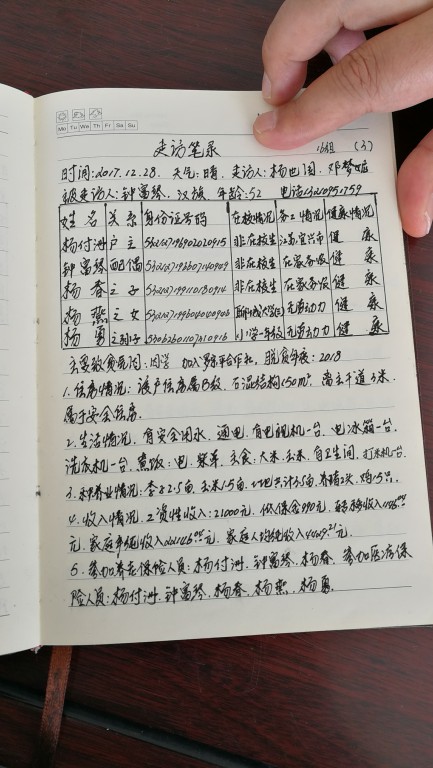 Mo Tu We Th Fr Sa Su
走访笔录 (3)
时间:2017.12.28. 天气:晴. 走访人:杨
被走访人:钟富琴. 汉族. 年龄:52 电话
姓名 关系 身份证号码 在校情况 务工情况 健康情况
杨付洲 户主 非在校生 江苏宜兴市 健康
钟富琴 配偶 非在校生 在家务农 健康
杨春 之子 非在校生 在家务农 健康
杨燕 之女 无劳动力 健康
杨勇 之孙子 小学一年级 无劳动力 健康
主要致贫原因:因学 加入 合作社. 脱贫年度:2018
1.住房情况:该户住房属B级. 石混结构150m². 离主干道3米.
属于安全住房.
2.生活情况. 有安全用水. 通电. 有电视机一台. 电冰箱一台.
洗衣机一台. 煮饭:电. 柴草. 主食:大米.玉米. 有卫生间. 打米机一台.
3.种养业情况:李子2.5亩. 玉米1.5亩. 养猪2头. 鸡15只.
4.收入情况. 工资性收入:21000元. 低保金990元.
元. 家庭年纯收入 元. 家庭人均纯收入 元.
5.参加养老保险人员:杨付洲. 钟富琴. 杨春. 参加医疗保
险人员:杨付洲. 钟富琴. 杨春. 杨燕. 杨勇.